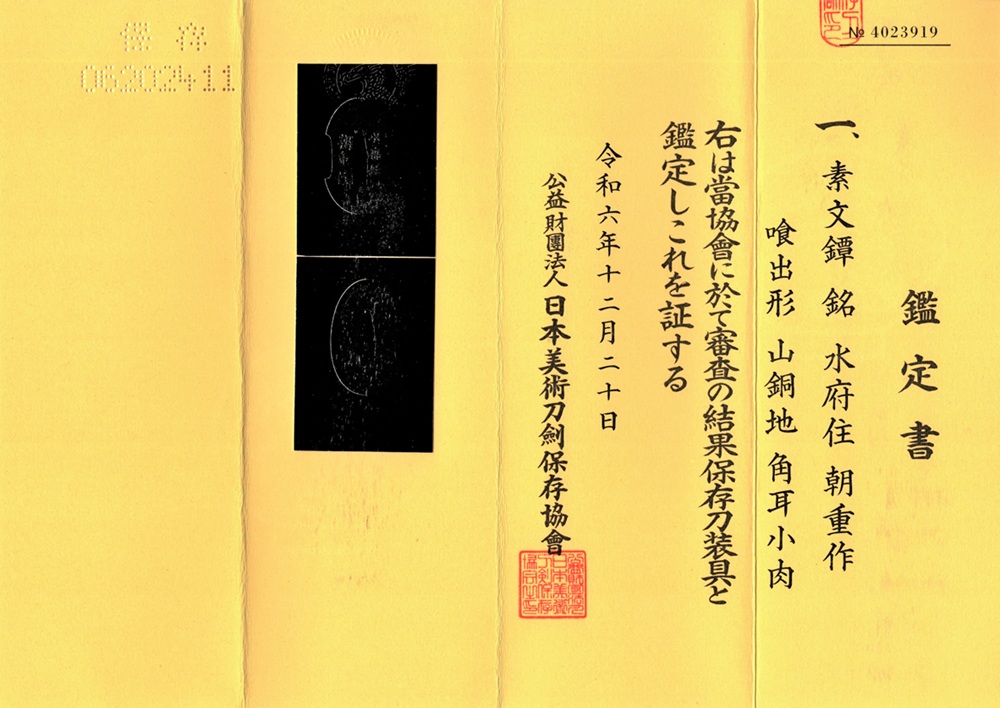 № 4023919
鑑定書
一、素文鐔 銘 水府住 朝重作
喰出形 山銅地 角耳小肉
右は當協會に於て審査の結果保存刀装具と
鑑定しこれを証する
令和六年十二月二十日
公益財團法人 日本美術刀劍保存協會
保存
06202411